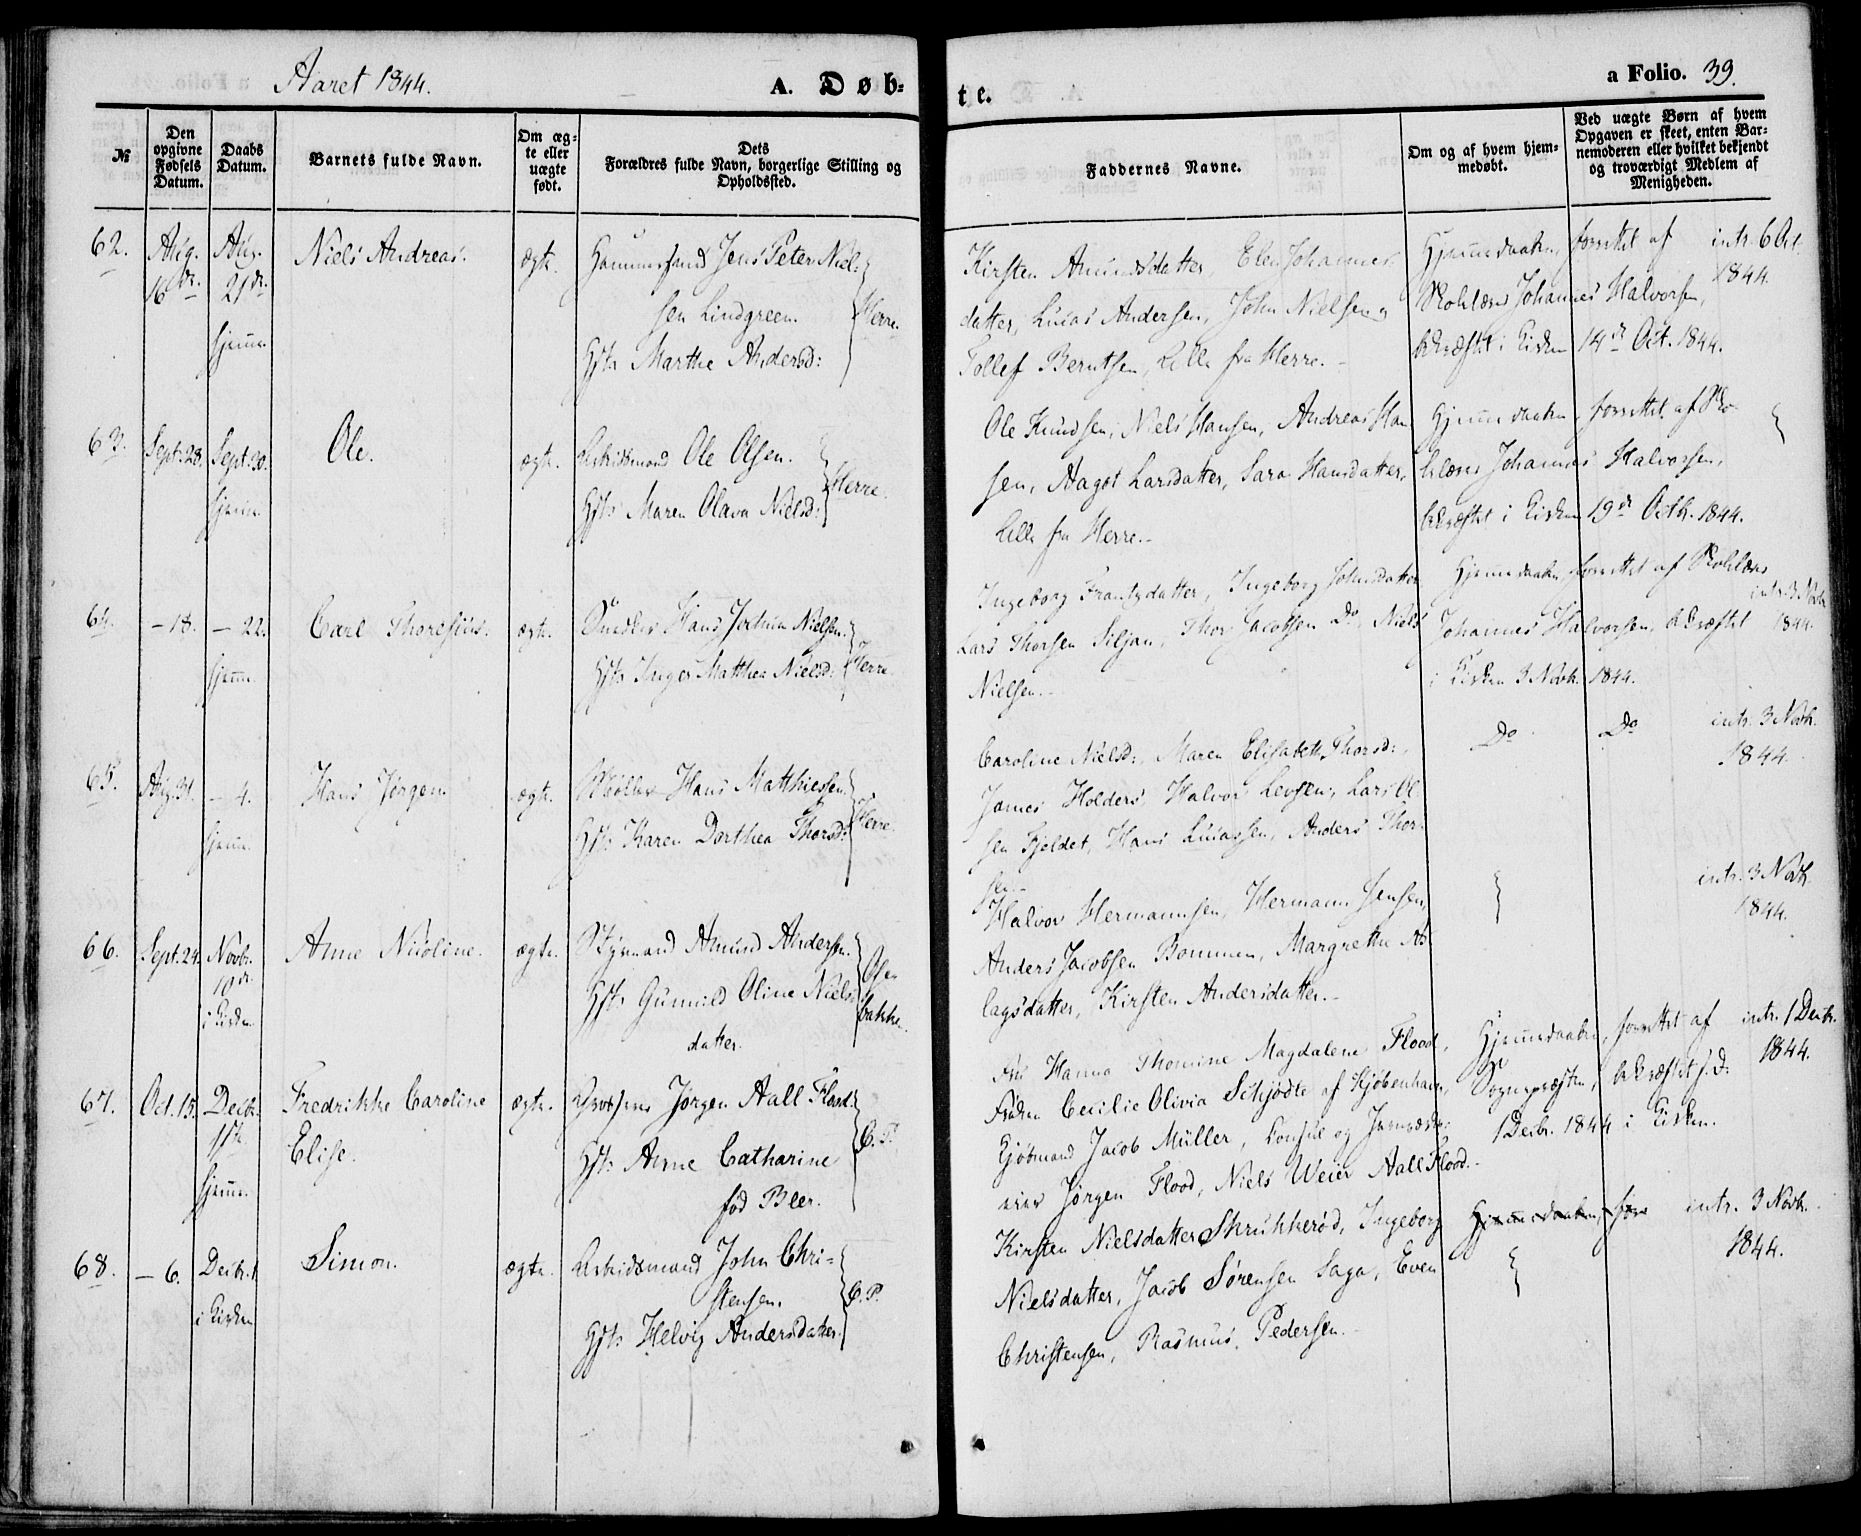 Aaret 1844.
A. Døb-
te.
a Folio. 39.
№
Den opgivne Fødsels Datum.
Daabs Datum.
Barnets fulde Navn.
Om æg-
te eller
uægte
født.
Dets
Forældres fulde Navn, borgerlige Stilling og
Opholdssted.
Faddernes Navne.
Om og af hvem hjem-
medøbt.
Ved uægte Børn af hvem
Opgaven er skeet, enten Bar-
nemoderen eller hvilket bekjendt
og troværdigt Medlem af
Menigheden.
62.
Aug.
16de.
Aug.
21de.
hjemme
Niels Andreas.
ægte.
Jens Peter Niel-
sen Lindgreen.
Hst: Marthe Andersd:
Herre.
Kirsten Amundsdatter, Elen Johannes-
datter, Lucas Andersen, John Nielsen og
Tollef Berntsen, Alle fra Herre. -
Hjemmedaaben forrettet af
Skolelærer Johannes Halvorsen,
bekræftet i Kirken 14de Oct. 1844.
intr. 6 Oct.
1844.
63.
Sept. 28.
Sept. 30.
hjemme
Ole.
ægte.
Arbeidsmand Ole Olsen.
Hst: Maren Olava Nielsd:
Herre.
Ole Knudsen, Niels Hansen, Andreas Han
sen, Aagot Larsdatter, Sara Hansdatter,
Alle fra Herre. -
Hjemmedaaben forrettet af Sko-
lelærer Johannes Halvorsen,
bekræftet i Kirken 19de Octb. 1844.
64.
- 18.
- 22.
hjemme.
Carl Thoresius.
ægte.
Snedker Hans Jochum Nielsen.
Hst: Inger Matthea Nielsd:
Herre
Ingeborg Frantzdatter, Ingeborg Johnsdatter
Lars Thorsen Siljan, Thor Jacobsen Do, Niels
Nielsen. -
Hjemmedaaben forrettet af Skolelærer
Johannes Halvorsen, bekræftet
i Kirken 3 Novb. 1844.
intr. 3 Novb.
1844.
65.
Aug. 31.
- 4.
hjemme
Hans Jørgen.
ægte.
Møller Hans Matthiesen.
Hst: Karen Dorthea Thorsd:
Herre.
Caroline Nielsd:, Maren Elisabeth Thorsd:,
James Holders, Halvor Levsen, Lars Ol
sen Fjeldet, Hans Lucassen, Anders Thor-
sen. -
Do
Do
intr. 3 Novb.
1844.
66.
Sept. 24.
Novbr.
10de.
i Kirken
Anne Nicoline.
ægte.
Styrmand Amund Andersen.
Hst: Gunnild Oline Niels
datter.
bakken.
Halvor Hermannsen, Hermann Jensen,
Anders Jacobsen Bommen, Margrethe As
lagsdatter, Kirsten Andersdatter. -
intr. 3 Novb.
1844.
67.
Oct. 15.
Decbr.
hjemme.
Fredrikke Caroline
Elise.
ægte.
Jørgen Aall Flood.
Hst: Anne Catharine
fød Bler.
C. P.
Fru Hanna Thomine Magdalene Flood,
Frøken Cecilie Olivia Schjødte af Kjøbenhavn,
Kjøbmand Jacob Müller, Consul og
Jørgen Flood, Niels Weier Aall Flood. -
Hjemmedaaben forrettet af
Sognepræsten, bekræftet f. D:
1 Decbr. 1844 i Kirken.
intr. 1 Decbr.
1844.
68.
- 6.
Decbr. 1.
i Kirken
Simon.
ægte.
Arbeidsmand John Chri-
stensen.
Hst: Helvig Andersdatter.
C. P.
Kirsten Nielsdatter Skrukkerød, Ingeborg
Nielsdatter, Jacob Sørensen Saga, Even
Christensen, Rasmus Pedersen. -
Hjemmedaaben, for
intr. 3 Novb.
1844.